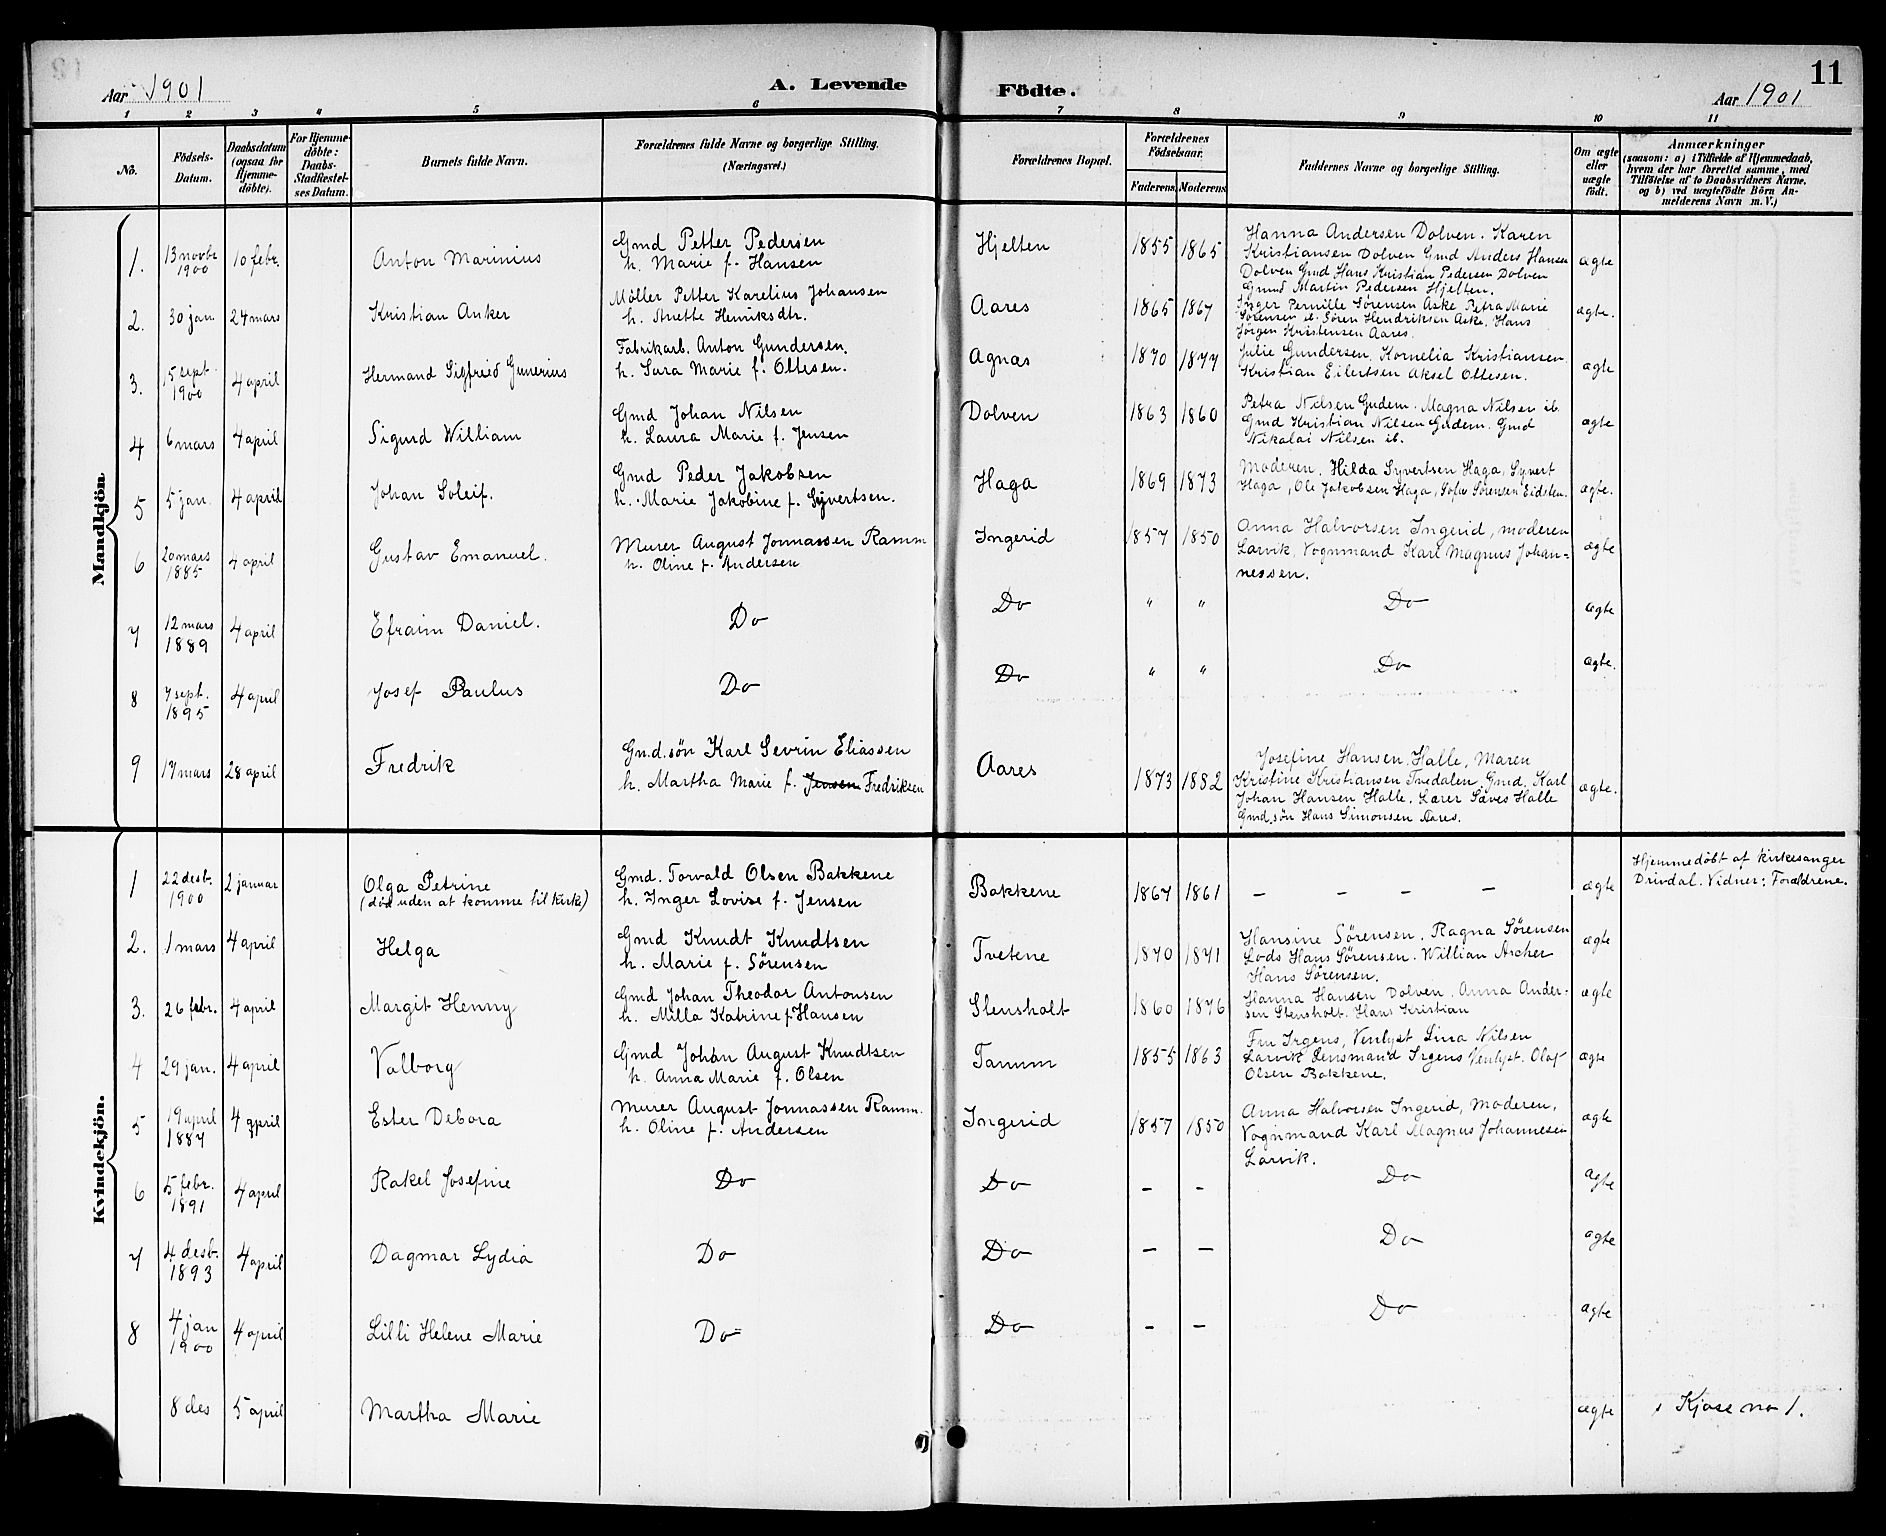 Aar 1901
A. Levende
Födte.
11
Aar 1901
1 2 3 4 5 6 7 8 9 10 11
No.
Födsels-
Datum.
Daabsdatum
(ogsaa for
Hjemme-
döbte).
For Hjemme-
döbte:
Daabs-
Stadfæstel-
ses Datum.
Barnets fulde Navn.
Forældrenes fulde Navne og borgerlige Stilling.
(Næringsvei.)
Forældrenes Bopæl.
Forældrenes
Födselsaar.
Faderens Moderens
Faddernes Navne og borgerlige Stilling.
Om ægte
eller
uægte
födt.
Anmærkninger
(saasom: a) i Tilfælde af Hjemmedaab,
hvem der har forrettet samme, med
Tilföielse af to Daabsvidners Navne,
og b) ved uægtefödte Börn An-
melderens Navn m. V.)
Mandkjön
1.
13 novbr.
1900
10 febr.
Anton Marinius
Gmd Petter Pedersen
h. Marie f. Hansen
Hjelten
1855 1865
Hanna Andersen Dolven. Karen
Kristiansen Dolven Gmd Anders Hansen
Dolven Gmd Hans Kristian Pedersen Dolven
Gmd Martin Pedersen Hjelten.
ægte
2.
30 jan.
24 mars
Kristian Anker
Möller Petter Karelius Johansen
h. Anette Henriksdtr.
Aares
1865 1867
Inger Pernille Sørensen Aske Petra Marie
Sørensen ib. Sören Hendriksen Aske, Hans
Jörgen Kristensen Aares.
ægte.
3.
15 sept.
1900
4 april
Hermand Sigfried Gunerius
Fabrikarb. Anton Gundersen.
h. Sara Marie f. Ottesen.
Agnas
1870 1877
Julie Gundersen, Kornelia Kristiansen
Kristian Eilertsen Aksel Ottesen.
ægte
4
6 mars
4 april
Sigurd William
Gmd Johan Nilsen
h. Laura Marie f. Jensen
Dolven
1863 1860
Petra Nilsen Gudem. Magna Nilsen ib.
Gmd Kristian Nilsen Gudem. Gmd
Nikolai Nilsen ib.
ægte
5
5 jan.
4 april
Johan Soleif.
Gmd Peder Jakobsen
h. Marie Jakobine f. Syvertsen.
Haga
1869 1873
Moderen, Hilda Syvertsen Haga, Syvert
Haga, Ole Jakobsen Haga, Sofus Sörensen Eidsten.
ægte.
6
20 mars
1885
4 april
Gustav Emanuel.
Murer August Jonnassen Ramm
h. Oline f. Andersen
Ingerid
1857 1850
Anna Halvorsen Ingerid, moderen
Larvik, Vognmand Karl Magnus Johan-
nessen.
ægte
7
12 mars
1889
4 april
Efraim Daniel.
Do
Do
" "
Do
ægte
8
7 sept.
1895
4 april
Josef Paulus
Do
Do
" "
Do
ægte.
9
17 mars
28 april
Fredrik
Gmd.søn Karl Sevrin Eliassen
h. Martha Marie f. Jensen Fredriksen
Aares
1873 1882
Josefine Hansen, Halle, Maren
Kristine Kristiansen Tvedalen, Gmd, Karl
Johan Hansen Halle. Lærer Saves Halle
Gmd.søn Hans Simonsen Aares.
ægte.
Kvindekjön.
1
22 desb.
1900
2 januar
Olga Petrine
(död uden at komme til kirke)
Gmd. Torvald Olsen Bakkene
h. Inger Lovise f. Jensen
Bakkene
1867 1861
– – – –
ægte
Hjemmedöbt af kirkesanger
Drivdal. Vidner: Forældrene.
2.
1 mars
4 april
Helga
Gmd Knudt Knudtsen
h. Marie f. Sørensen
Tvetene
1870 1871
Hansine Sørensen. Ragna Sörensen
Lods Hans Sørensen. Willian Archer
Hans Sørensen.
ægte
3.
26 febr.
4 april
Margit Henny
Gmd Johan Theodor Antonsen
h. Milla Katrine f. Hansen
Stensholt
1860 1876
Hanna Hansen Dolven. Anna Ander-
sen Stensholt. Hans Kristian
ægte
4
29 jan.
4 april
Valborg
Gmd Johan August Knudtsen
h. Anna Marie f. Olsen
Tamm
1855 1863
Fru Irgens, Venlyst Lina Nilsen
Larvik Lensmand Irgens Venlyst. Olaf
Olsen Bakkene.
ægte
5
19 april
1887
4 april
Ester Debora
Murer August Jonnassen Ramm.
h. Oline f. Andersen
Ingerid
1857 1850
Anna Halvorsen Ingerid, Moderen,
Vognmand Karl Magnus Johannesen
Larvik.
ægte
6
5 febr.
1891
4 april
Rakel Josefine
Do
Do
– –
Do
ægte
7
4 desb.
1893
4 april
Dagmar Lydia
Do
Do
– –
Do
ægte
8
4 jan
1900
4 april
Lilli Helene Marie
Do
Do
– –
Do
ægte
8 des
5 april
Martha Marie
ægte
Kjose no 1.